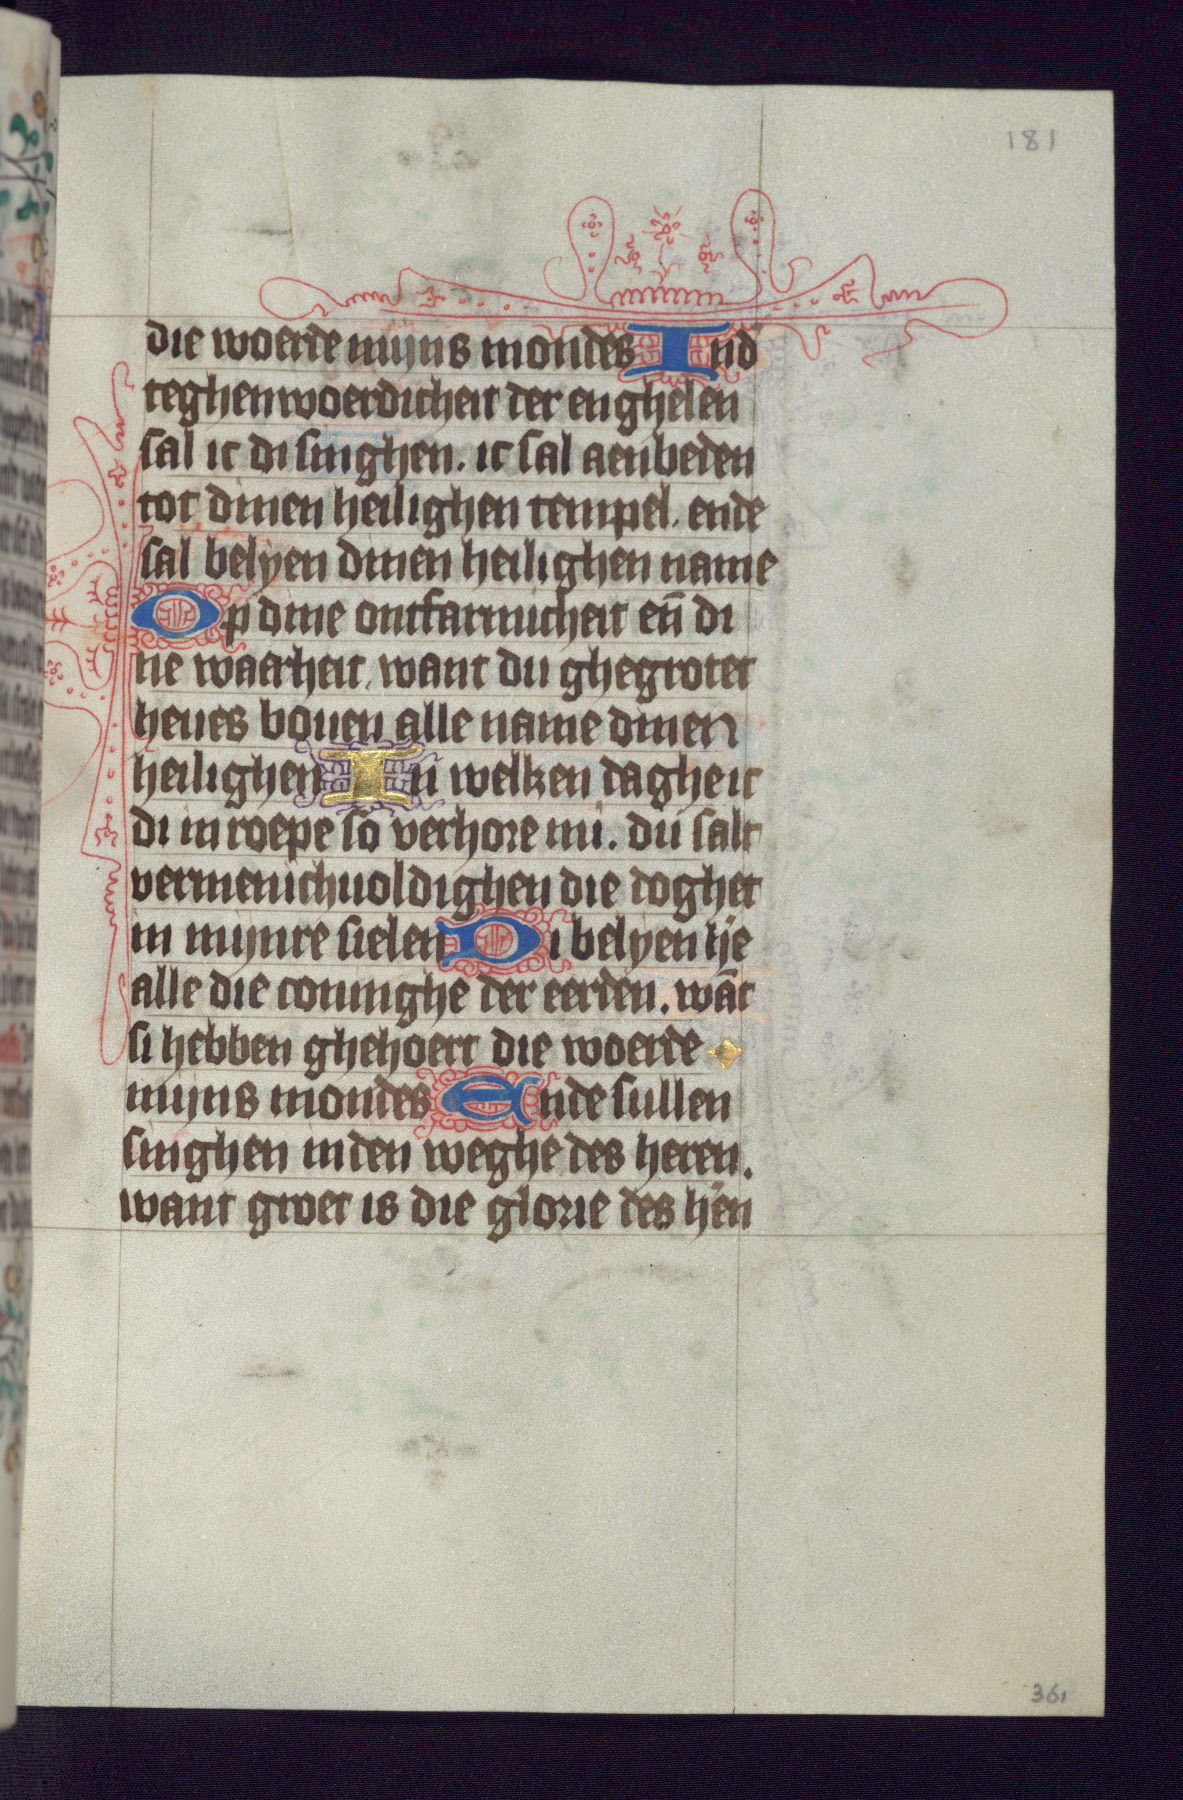 181
die woerde mijns mondes Ind
teghenwoerdicheit der enghelen
sal ic di singhen. ic sal aenbeden
tot dinen heilighen tempel. ende
sal belyen dinen heilighen name
Op dine ontfarmicheit en̄ di
ne waerheit, want du ghegrotet
heues bouen alle name dinen
heilighen In welken daghe ic
di in roepe so verhore mi. du salt
vermenichuoldighen die doghet
in mijnre sielen Di belyen h̓e
alle die coninghe der eerden. wāt
si hebben ghehoert die woerde
mijns mondes Ende sullen
singhen in den weghe des heren.
want groet is die glorie des h̓en
361